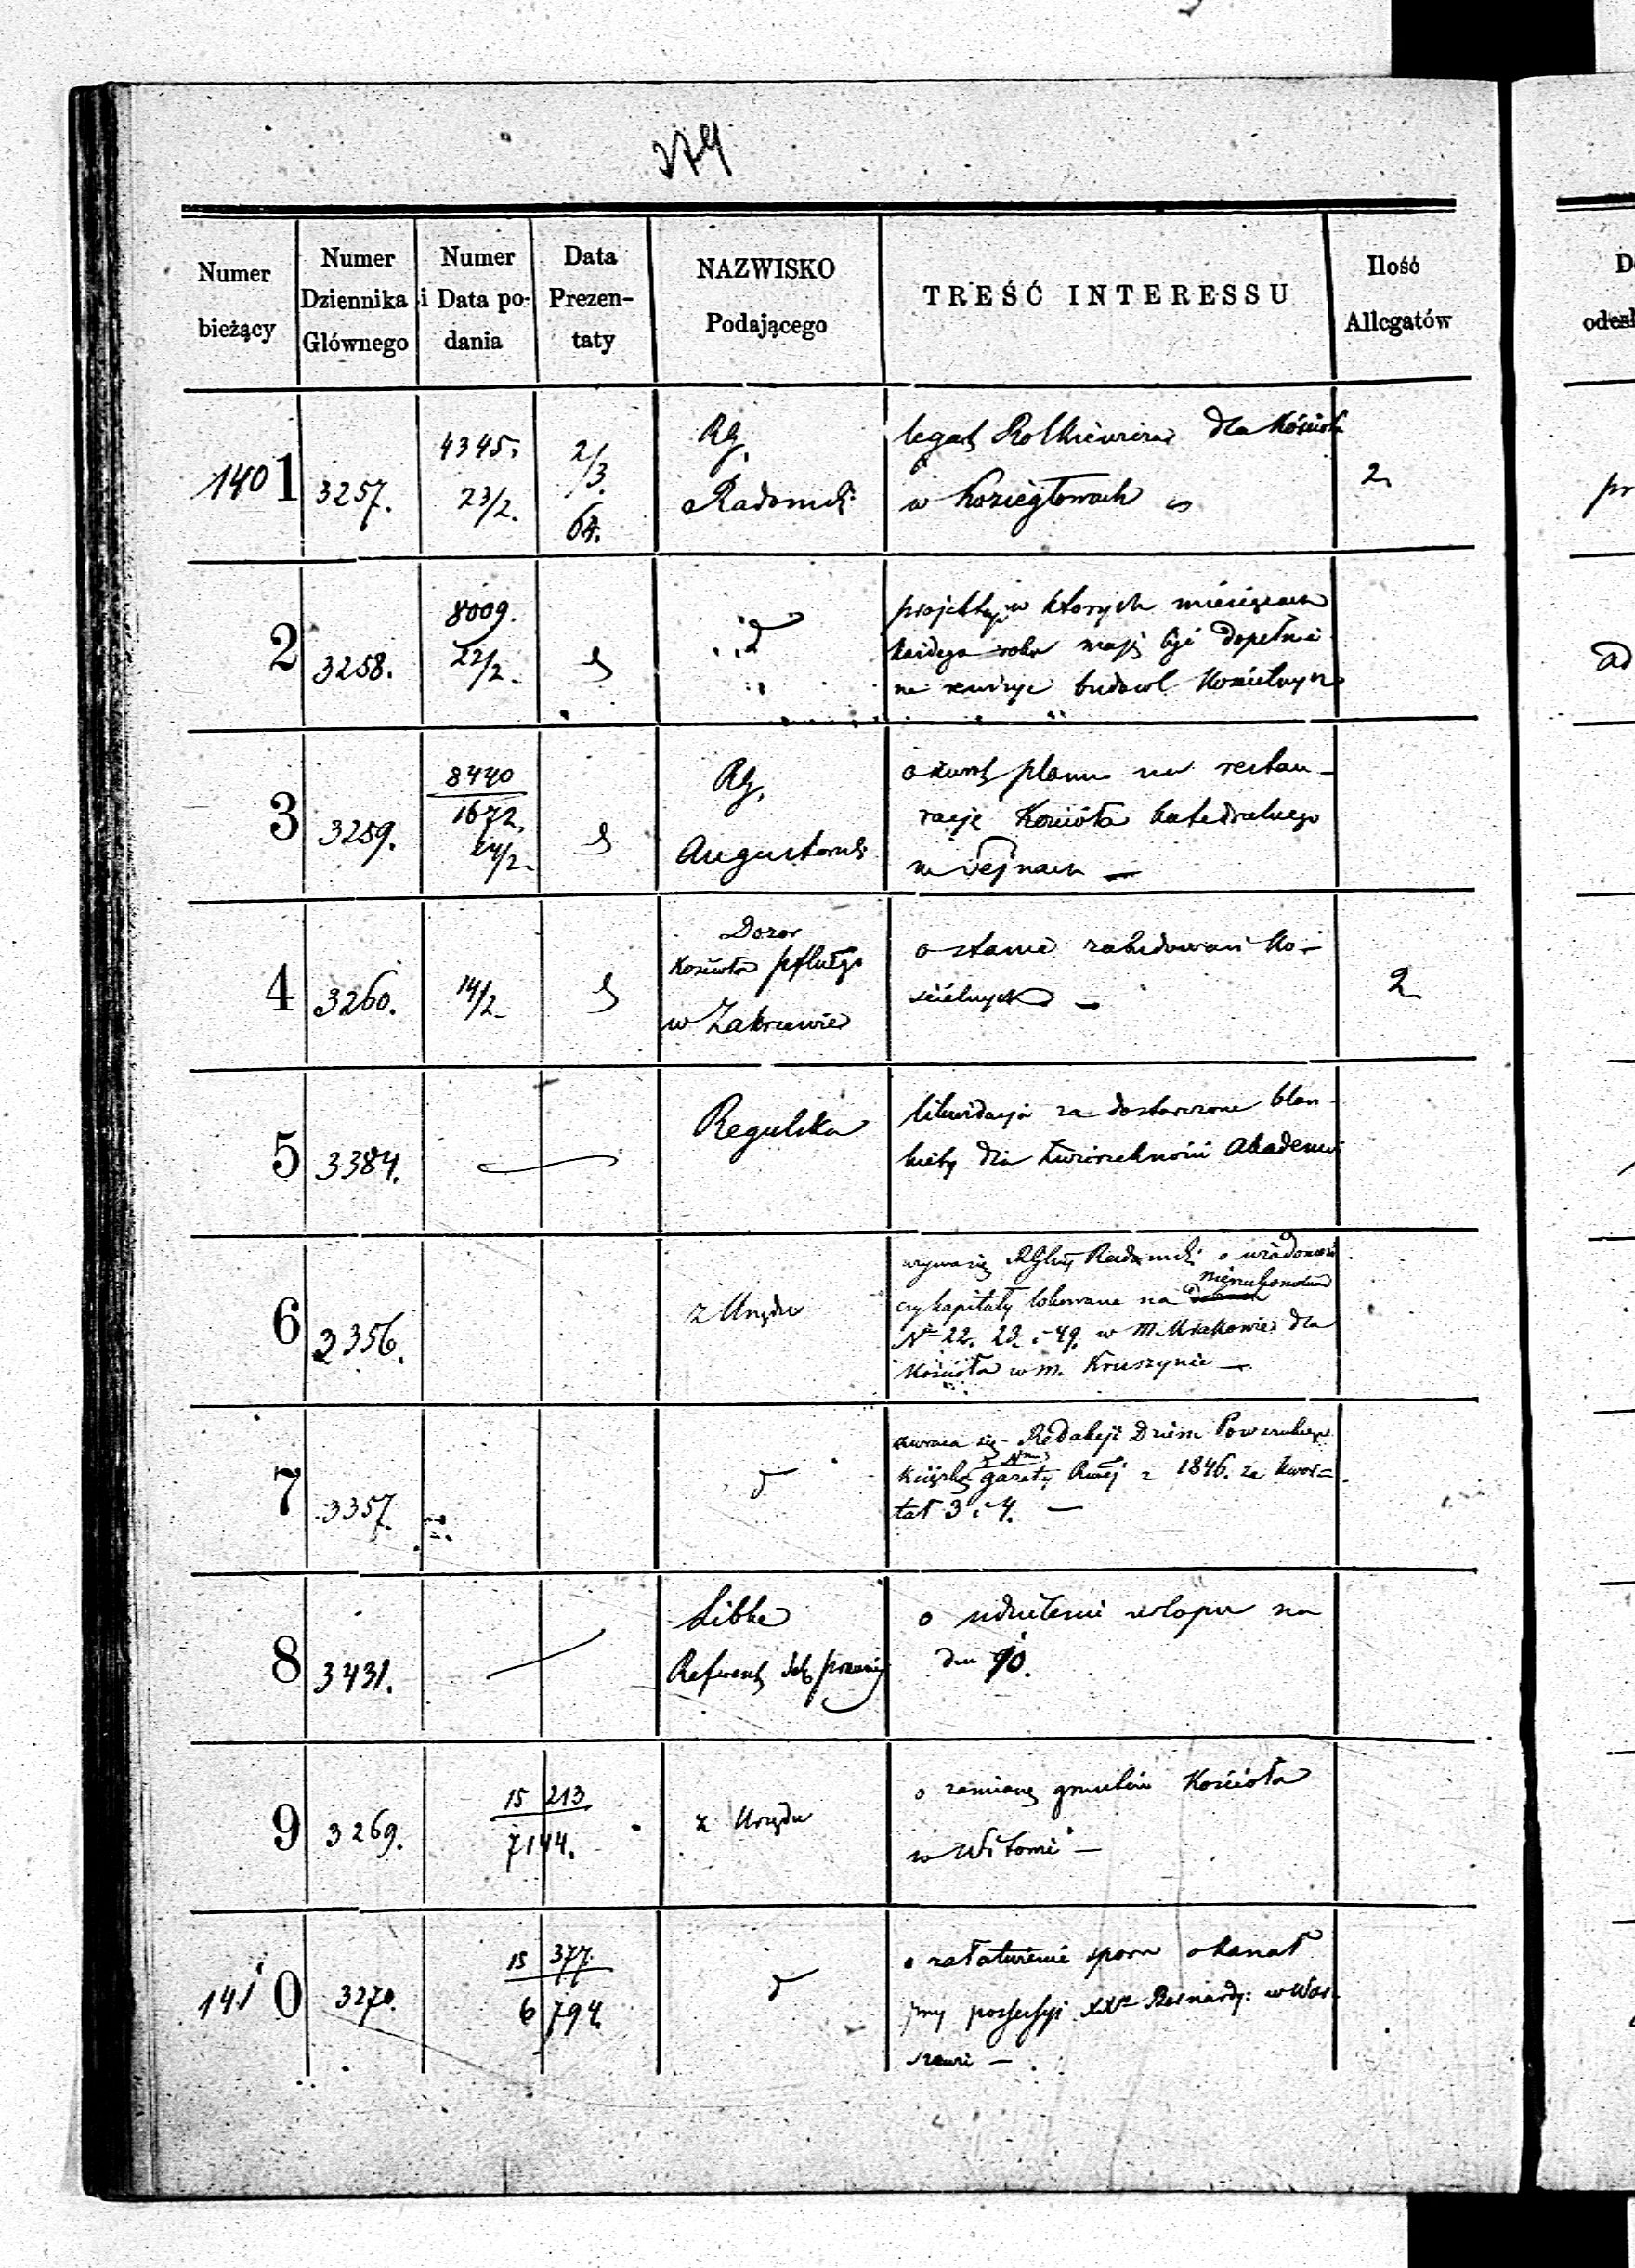 379
Numer bieżący
Numer Dziennika Głównego
Numer i Data podania
Data Prezentaty
NAZWISKO Podającego
TREŚĆ INTERESSU
Ilość Allegatów
1401
3257.
4345.
23/2.
2/3.
64.
RG.
Radomski
legat Rolkiewicza dla Kościoła
w Koziegłowach
2.
2
3258.
8009.
22/2.
id
projekty w których miesiącach
każdego roku mają być dopełnia
ne rewizye budowl Kościelnych
3
3259.
8440
1672.
24/2.
RG.
Augustowski
o zwrot planu na restau-
racją Kościoła Katedralnego
w Sejnach —
4
3260.
14/2.
Dozor
Kościoła pflnego
w Zakrzewie
o stanie zabudowań Ko-
ścielnych —
2.
5
3384.
Regulska
likwidacja za dostarczone blan-
kiety dla Zwierzchności Akademii
6
3356.
z Urzędu
wzywa się RGlny Radomski o wiadomość
nieruchomościach
czy kapitały lokowane na
№ 22. 23. i 49. w m. Krakowie dla
Kościoła w m. Kruszynie —
7
3357.
d
zwraca się Redakcji Dzien. Powszechnego
książkę gazety Rząd z 1846. za kwar=
tał 3 i 4. —
8
3431.
Libke
Referent
o udzielenie urlopu na
dni 90.
9
3269.
15 213
7144.
z Urzędu
o zamianę gruntów Kościoła
w Witoni —
1410
3270.
15 377.
6 794.
d
o załatwienie sporu o kanał
przy possessyi XX. Bernardy: w War-
szawie —